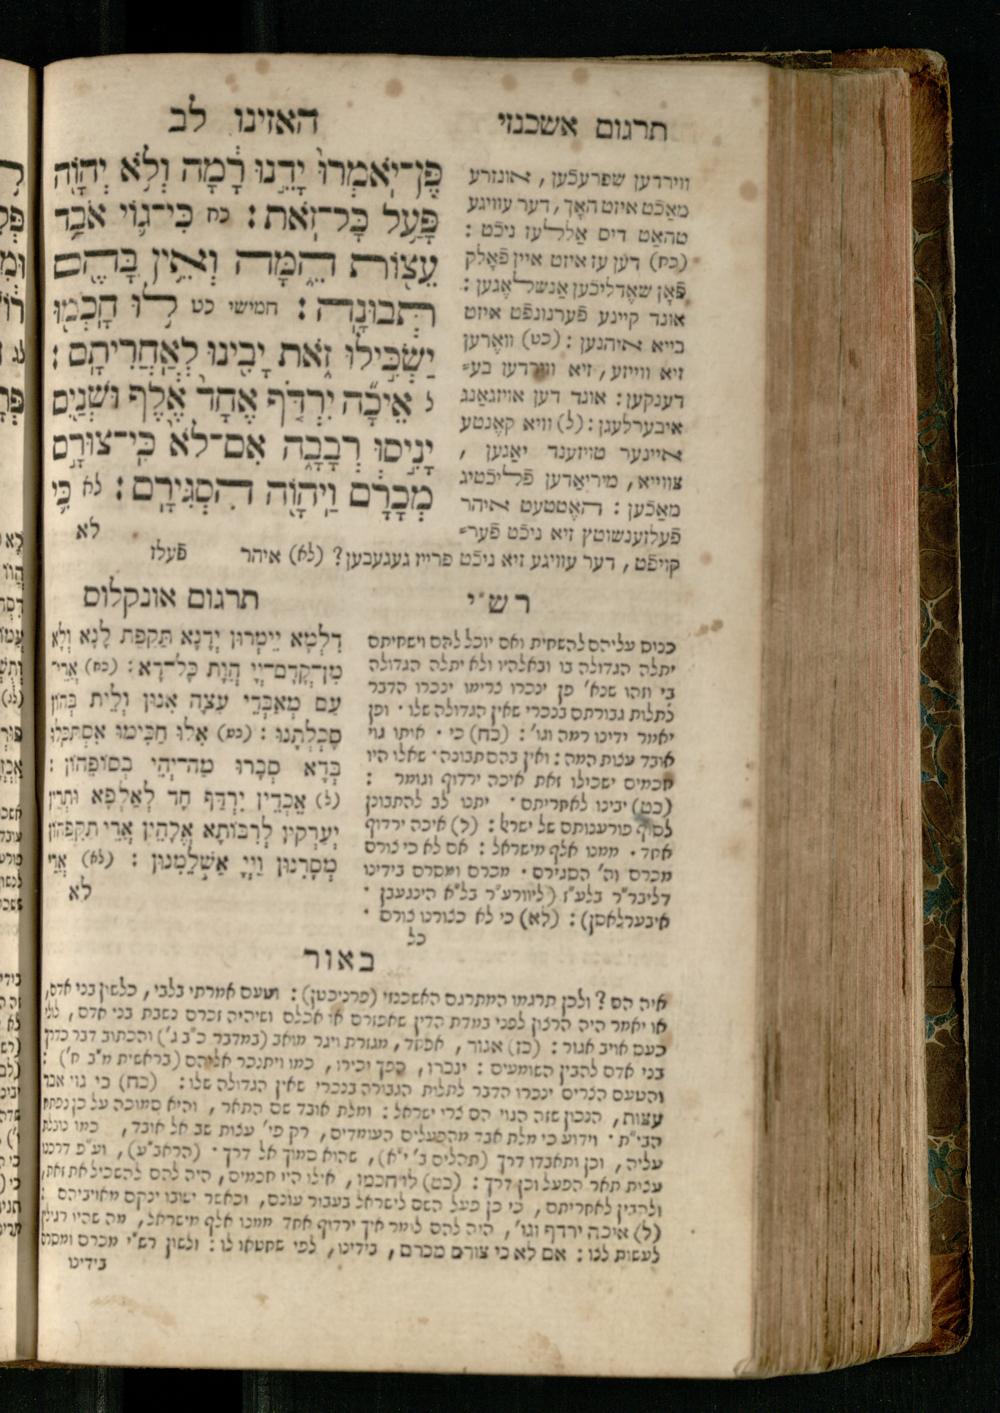 תרגום אשכנזי
האזינו לב
פֶּן־יֹאמְרוּ יָדֵנוּ רָמָה וְלֹא יְהוָֹה
פָּעַל כָּל־זֹאת׃ כח כִּי־גוֹי אֹבַד
עֵצוֹת הֵמָּה וְאֵין בָּהֶם
תְּבוּנָה׃ חמישי כט לוּ חָכְמוּ
יַשְׂכִּילוּ זֹאת יָבִינוּ לְאַחֲרִיתָם׃
ל אֵיכָה יִרְדֹּף אֶחָד אֶלֶף וּשְׁנַיִם
יָנִיסוּ רְבָבָה אִם־לֹא כִּי־צוּרָם
מְכָרָם וַיהוָֹה הִסְגִּירָם׃ לא כִּי
לא
ווירדען שפרעכֿען, אונזרע
מאַכֿט איזט האָך, דער עוויגע
טהאַט דיס אַללעז ניכֿט :
(כח) דען עז איזט איין פֿאָלק
פֿאָן שאָדליכֿען אַנשלאָגען :
אונד קיינע פֿערנונפֿט איזט
בייא איהנען : (כט) וואָרען
זיא ווייזע, זיא ווירדען בע⸗
דענקען : אונד דען אויזגאַנג
איבערלעגן : (ל) וויא קאָנטע
איינער טויזענד יאַגען ,
צווייא, מיריאַדען פֿליכֿטיג
מאַכֿען : האָטטעט איהר
פֿעלזענשוטץ זיא ניכֿט פֿער⸗
קויפֿט, דער עוויגע זיא ניכֿט פרייז געגעבען? (לא) איהר
פֿעלז
רש״י
כנוס עליהם להשחית ואם יוכל להם וישחיתם
יתלה הגדולה בו ובאלהיו ולא יתלה הגדולה
בי וזהו שנא' פן ינכרו צרימו ינכרו הדבר
לתלות גבורתם בנכרי שאין הגדולה שלו · ופן
יאמר ידינו רמה וגו' : (כח) כי · אותו גוי
אובד עצות המה : ואין בהם תבונה · שאלו היו
חכמים ישכילו זאת איכה ירדוף וגומר :
(כט) יבינו לאחריתם · יתנו לב להתבונן
לסוף פורענותם של ישראל : (ל) איכה ירדוף
אחד · ממנו אלף מישראל : אם לא כי צורם
מכרם וה' הסגירם · מכרם ומסרם בידינו
דליבר״ר בלע״ז (ליוורע״ר בל״א הינגעבן
איבערלאסן) : (לא) כי לא כצורנו צורם ·
כל
תרגום אונקלוס
דִּלְמָא יֵימְרוּן יְדָנָא תַּקִּפַת לָנָא וְלָא
מִן־קֳדָם־יְיָ הֲוַת כָּל־דָּא : (כח) אֲרֵי־
עַם מְאַבְּדֵי עֵצָה אִנּוּן וְלֵית בְּהוֹן
סֻכְלְתָנוּ : (כט) אִלּוּ חַכִּימוּ אִסְתַּכָּלוּ
בְּדָא סְבָרוּ מַה־יְּהֵי בְּסוֹפֵיהוֹן :
(ל) אֵכְדֵין יִרְדַּף חַד לְאַלְפָא וּתְרֵין
יְעָרְקִין לְרִבּוֹתָא אֱלָהֵין אֲרֵי תַקִּפְהוֹן
מְסָרִנּוּן וַיְיָ אַשְׁלְמִנּוּן : (לא) אֲרֵי
לא
באור
איה הם ? ולכן תרגמו המתרגם האשכנזי (פרניכטן) : וטעם אמרתי בלבי, כלשון בני אדם,
או יאמר היה הרצון לפני במדת הדין שאפזרם או אכלם ושיהיה זכרם נשבת בני אדם, לולי
כעס אויב אגור : (כז) אגור, אפחד, מגזרת ויגר מואב (במדבר כ״ב ג') והכתוב דבר כדרך
בני אדם להבין השומעים : ינכרו, הפך יכירו, כמו ויתנכר אליהם (בראשית מ״ב ז') :
והטעם הצרים ינכרו הדבר לתלות הגבורה בנכרי שאין הגדולה שלו : (כח) כי גוי אבד
עצות, הנכון שזה הגוי הם צרי ישראל : ומלת אובד שם התאר, והיא סמוכה על כן נפתח
הבי״ת · וידוע כי מלת אבד מהפעלים העומדים, רק פי' עצות שב אל אובד, כמו נובלת
עליה, וכן ותאבדו דרך (תהלים ב' י״א), שהוא סמוך אל דרך · (הראב״ע), וע״פ דרכנו
ענית תאר הפעל וכן דרך : (כט) לו חכמו, אילו היו חכמים, היה להם להשכיל את זאת,
ולהבין לאחריתם, כי כן פעל השם לישראל בעבור עונם, וכאשר ישובו ינקם מאויביהם :
(ל) איכה ירדף וגו', היה להם לומר איך ירדוף אחד ממנו אלף מישראל, מה שהיו רגילין
לעשות לנו : אם לא כי צורם מכרם, בידינו, לפי שחטאו לו : ולשון רש״י מכרם ומסרם
בידינו